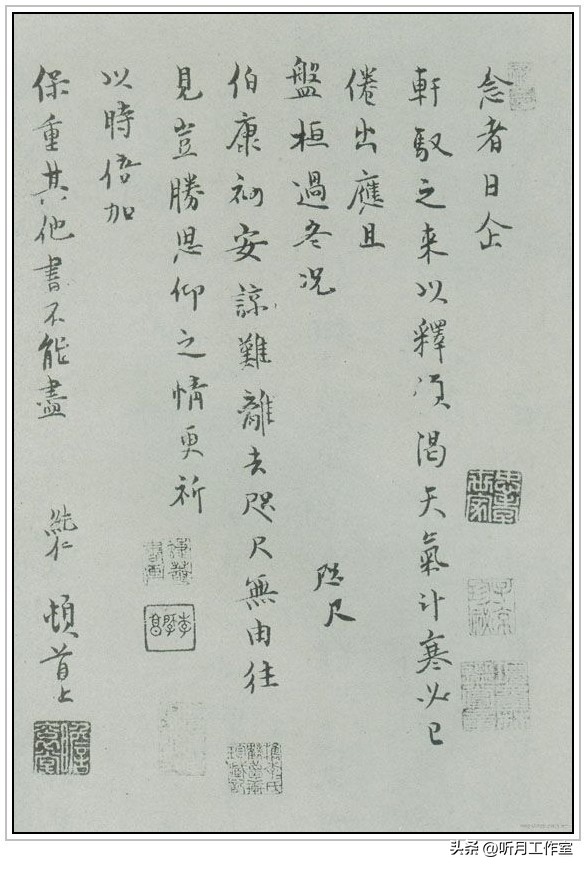 念者日企
軒馭之来以釋湏渴天氣计寒必已
倦出應且
盤桓過冬况
咫尺
伯康初安諒難離去咫尺無由往
見豈勝思仰之情更祈
以時倍加
保重其他書不能盡
頓首上
头条 @听月工作室